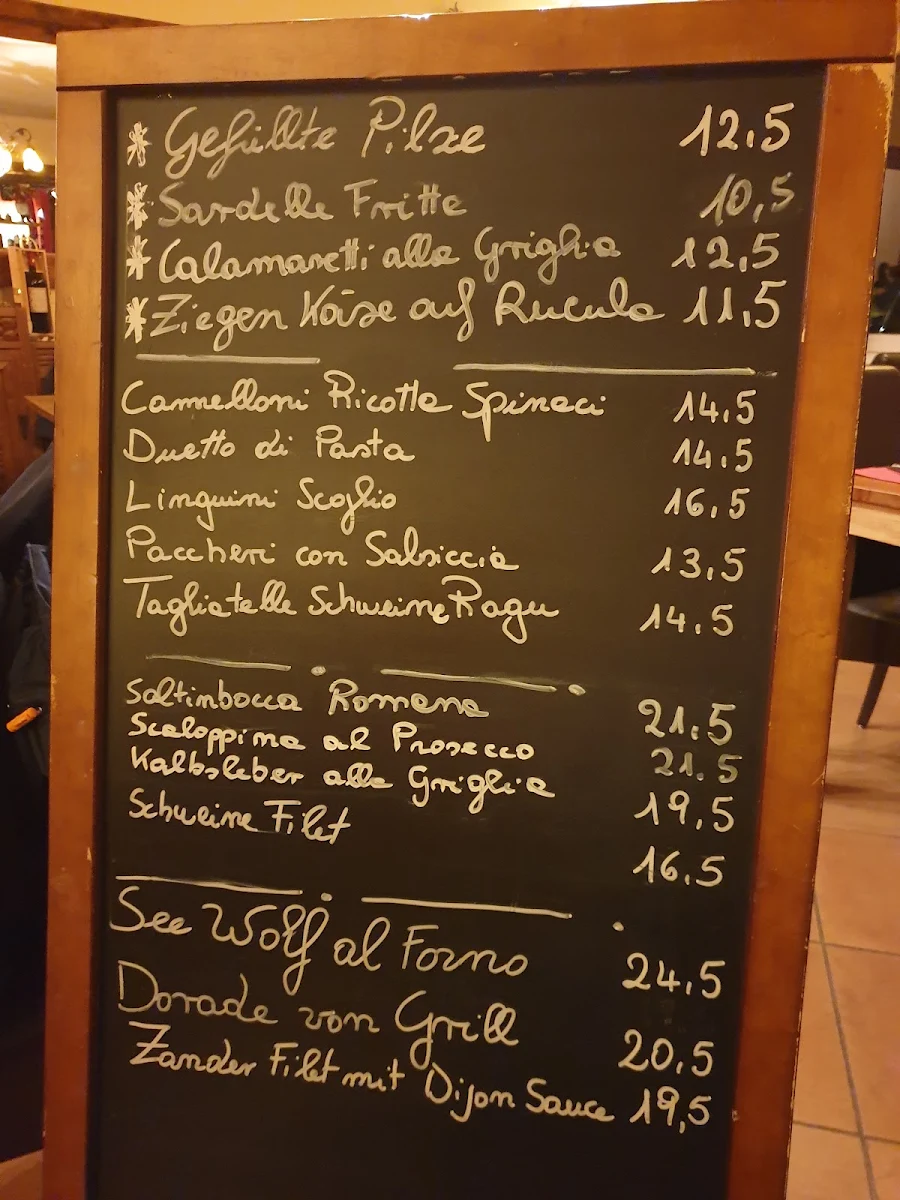 * Gefüllte Pilze 12.5
* Sardelle Fritte 10,5
* Calamaretti alla Griglia 12.5
* Ziegen Käse auf Rucula 11,5
Cannelloni Ricotta Spinaci 14.5
Duetto di Pasta 14.5
Linguini Scoglio 16.5
Paccheri con Salsiccia 13,5
Tagliatelle Schweine Ragu 14.5
Saltimbocca Romana 21.5
Scaloppina al Prosecco 21.5
Kalbsleber alla Griglia 19,5
Schweine Filet 16.5
See Wolf al Forno 24,5
Dorade von Grill 20,5
Zander Filet mit Dijon Sauce 19,5